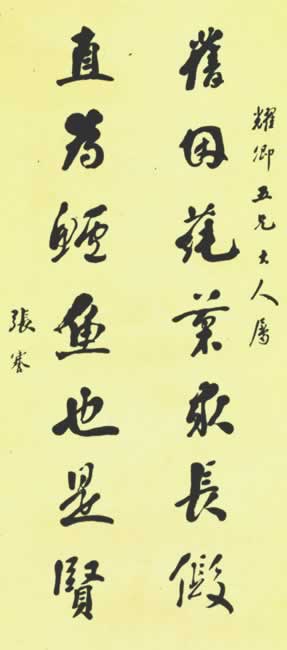 耀卿五兄大人屬
舊因蒓菜求長假
直為鱸魚也是賢
張謇